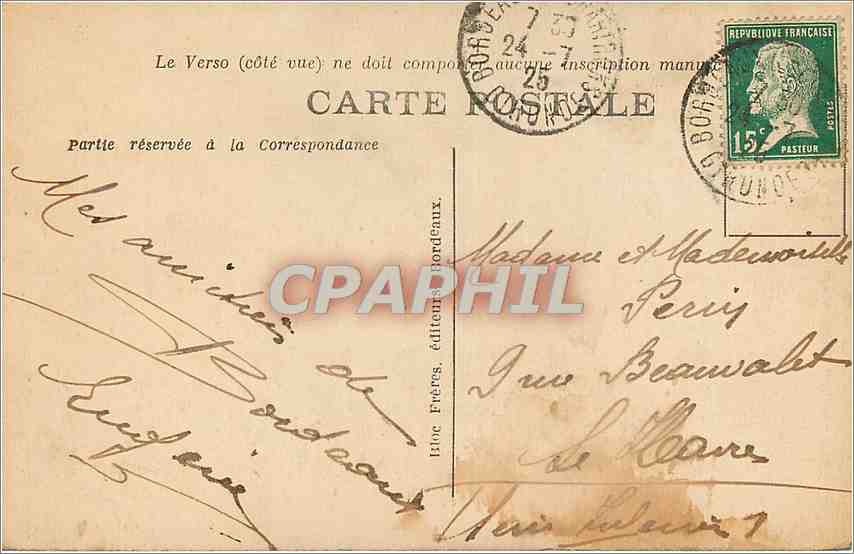 Le Verso (côté vue) ne doit comporter aucune inscription manu
CARTE POSTALE
Partie réservée à la Correspondance
REPVBLIQVE FRANÇAISE
15c
POSTES
PASTEUR
BORDEAUX
7 30
24 - 7
25
GIRONDE
BORDEAUX
GIRONDE
Mes amitiés de
Bordeaux
Bloc Frères, éditeurs Bordeaux.
CPAPHIL
Madame et Mademoiselle
9 rue Beauvalet
Le Havre